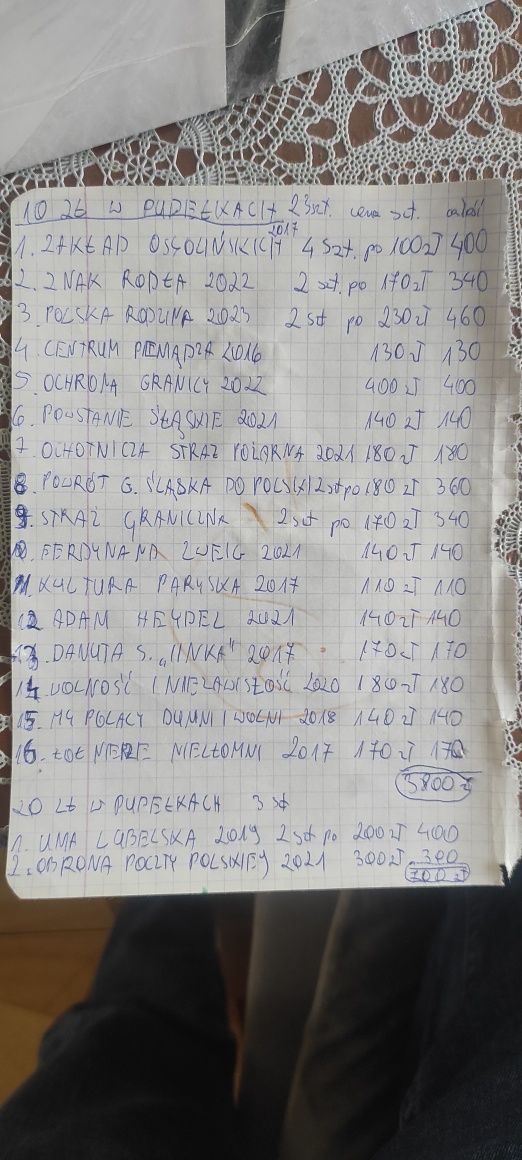 10 ZŁ W PUDEŁKACH 23 szt. cena szt. całość
1. ZAKŁAD OSSOLIŃSKICH 2017 4 szt. po 100 zł 400
2. ZNAK RODŁA 2022 2 szt. po 170 zł 340
3. POLSKA RODZINA 2023 2 szt po 230 zł 460
4. CENTRUM PIENIĄDZA 2016 130 zł 130
5. OCHRONA GRANICY 2022 400 zł 400
6. POWSTANIE ŚLĄSKIE 2021 140 zł 140
7. OCHOTNICZA STRAŻ POŻARNA 2021 180 zł 180
8. POWRÓT G. ŚLĄSKA DO POLSKI 2 szt po 180 zł 360
9. STRAŻ GRANICZNA 2 szt po 170 zł 340
10. FERDYNAND ZWEIG 2021 140 zł 140
11. KULTURA PARYSKA 2017 110 zł 110
12. ADAM HEYDEL 2021 140 zł 140
13. DANUTA S. "INKA" 2017 170 zł 170
14. WOLNOŚĆ I NIEZAWISŁOŚĆ 2020 180 zł 180
15. MY POLACY DUMNI I WOLNI 2018 140 zł 140
16. ŻOŁNIERZE NIEZŁOMNI 2017 170 zł 170
3800 zł
20 ZŁ W PUDEŁKACH 3 szt
1. UNIA LUBELSKA 2019 2 szt po 200 zł 400
2. OBRONA POCZTY POLSKIEJ 2021 300 zł 300
700 zł